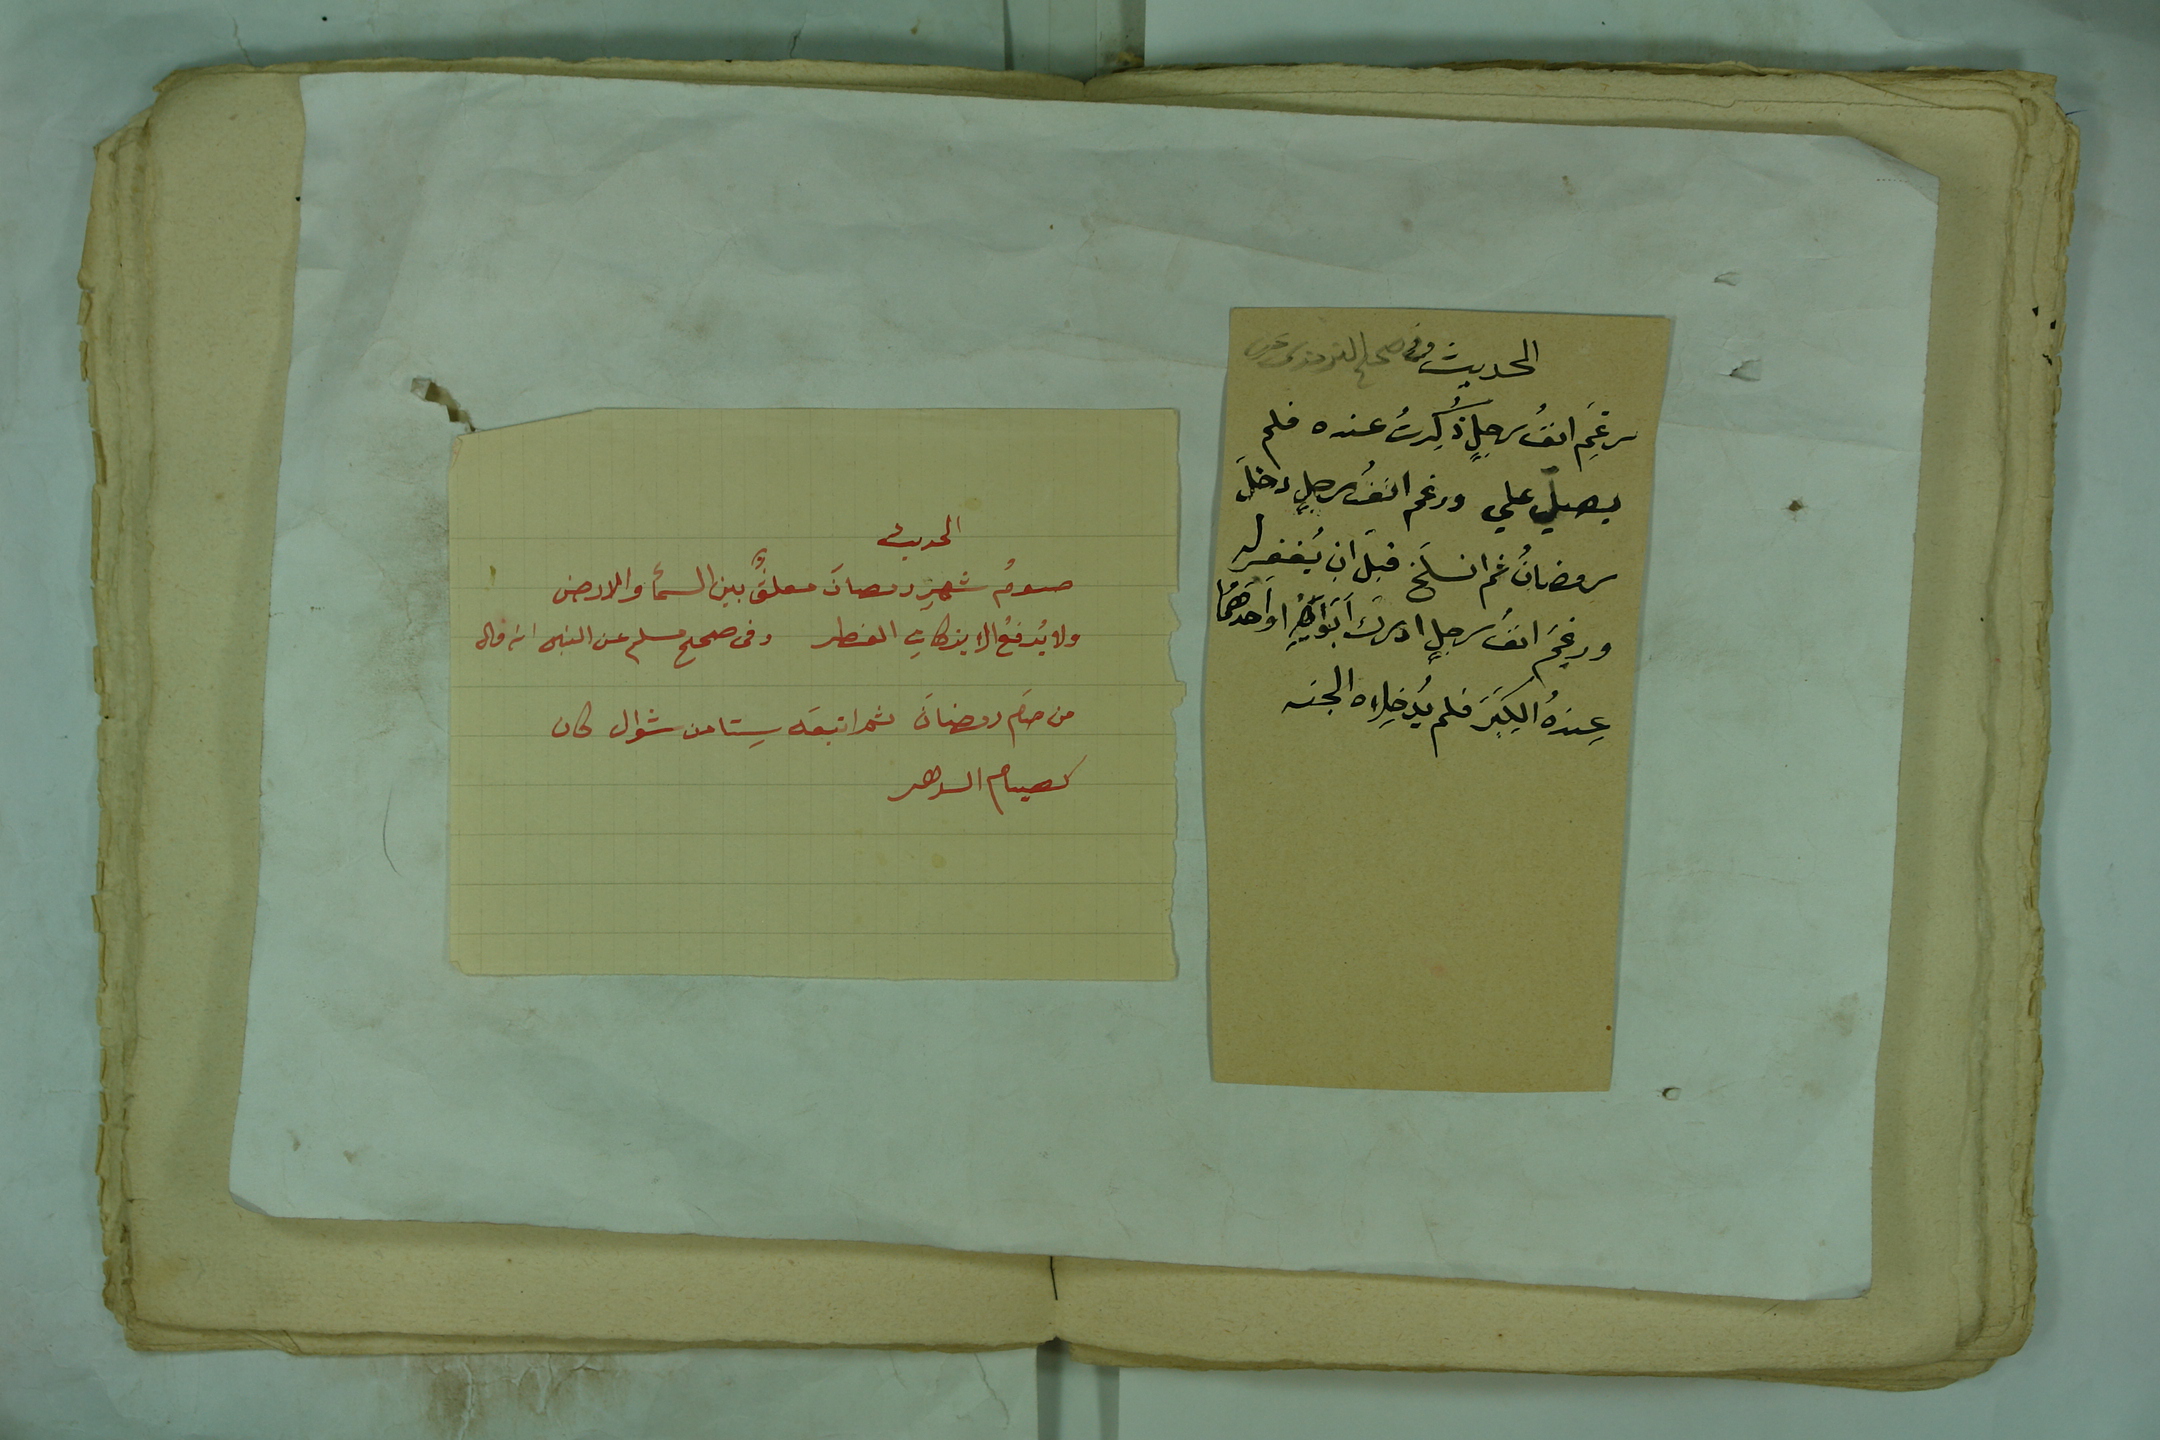 الحديث وفي صحيح الترمذي عن
رغِمَ انفُ رجلٍ ذُكِرتُ عنده فلم
يصلي علي ورغم انفُ رجلٍ دخلَ
رمضانُ ثم انسلَخ قبلَ ان يُغفرله
ورغِمَ انفُ رجلٍ ادركَ اَبَوَاهُ اواَحَدَهُمَا
عِندهُ الكِبَرَ فلم يُدخِلاه الجنه
الحديث
صومُ شهرِ رمضانَ معلقٌ بين السمأ والارض
ولا يُرفعُ الا بزكاتِ الفطر وفى صحيح مسلم عن النبى انه قال
من صام رمضانَ ثم اتبعَه سِتا من شوال كان
كصيام الدهر